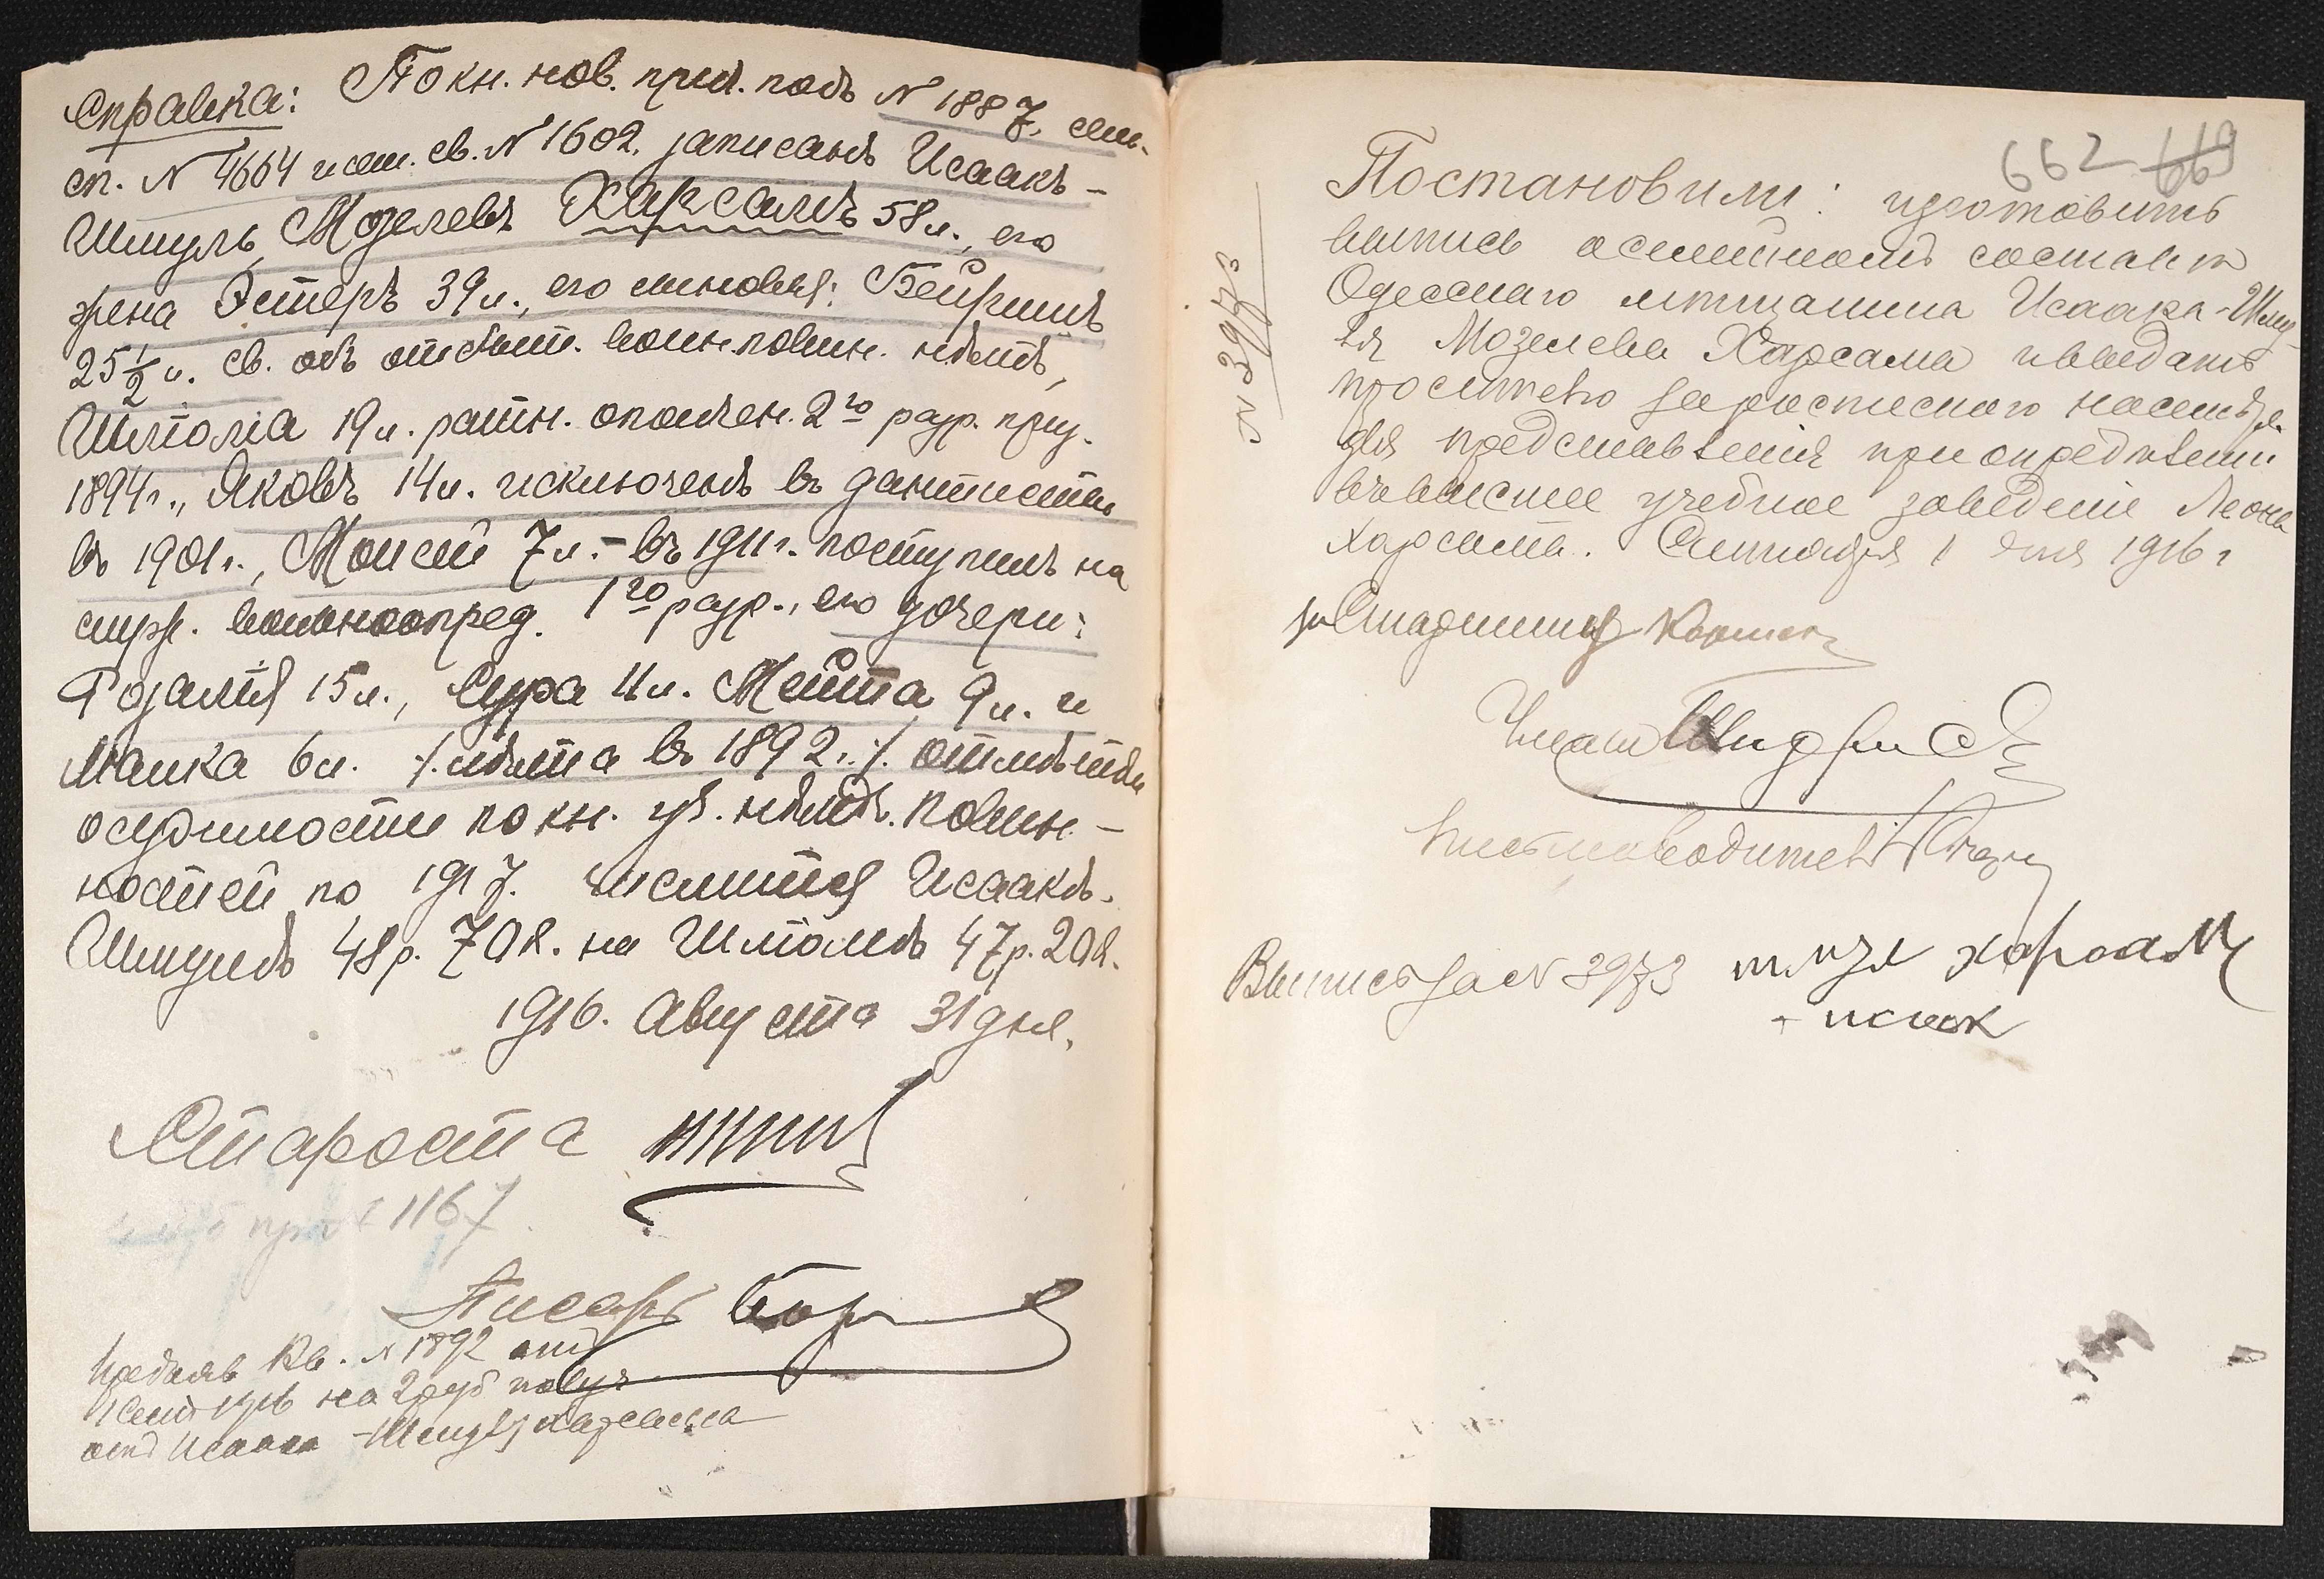 Справка: По кн. нов. прил. подъ N 1887, сем.
сп. N 4664 и сем. св. N 1602. записанъ Исаакъ-
Шмуль Мозелевъ Харсамъ 58 л., его
жена Эстеръ 39 л., его сыновья: Бейришъ
25 1/2 л. св. объ отбыт. воин. повин. нѣтъ,
Шліома 19 л. ратн. ополчен. 2го разр. приз.
1894 г., Яковъ 14 л. исключенъ въ дантисты
въ 1901 г., Моисей 7 л. - въ 1911 г. поступилъ на
служ. вольноопред. 1го разр., его дочери:
Розалія 15 л., Сура 11 л. Мейта 9 л. и
Манка 6 л. /. лѣта въ 1892 г. ./. отмѣтки
осудимости по кн. уч. нѣтъ. Повин-
ностей по 1917. числится Исаакъ-
Шмулъ 48 р. 70 к. на Шліомѣ 47 р. 20 к.
1916. Августа 31 дня.
Староста
1167
Писарь
Предъяв кв. N 1892 отъ
1 Сент 1916 на 2 руб получ
отъ Исаака-Шмуля Харсама
662 669
N 3973
Постановили: изготовить
выпись о семейномъ составѣ
Одесскаго мѣщанина Исаака-Шму-
ля Мозелева Харсама и выдать
просителю за
для представленія при опредѣленіи
въ высшее учебное заведеніе Леона
Харсама. Сентября 1 дня 1916 г
за Старшину
Членъ
Письмоводитель
Выпись за N 3973 Харсам